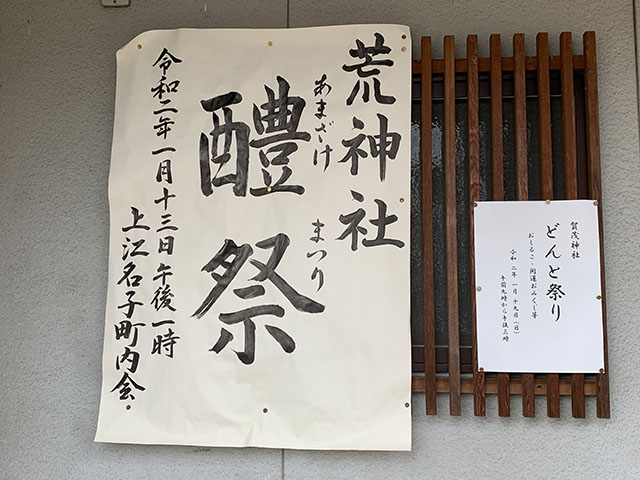 荒神社
あまざけ まつり
醴祭
令和二年一月十三日午後一時
上江名子町内会
賀茂神社
どんと祭り
おしるこ・開運おみくじ等
令和二年一月十九日(日)
午前九時から午後三時